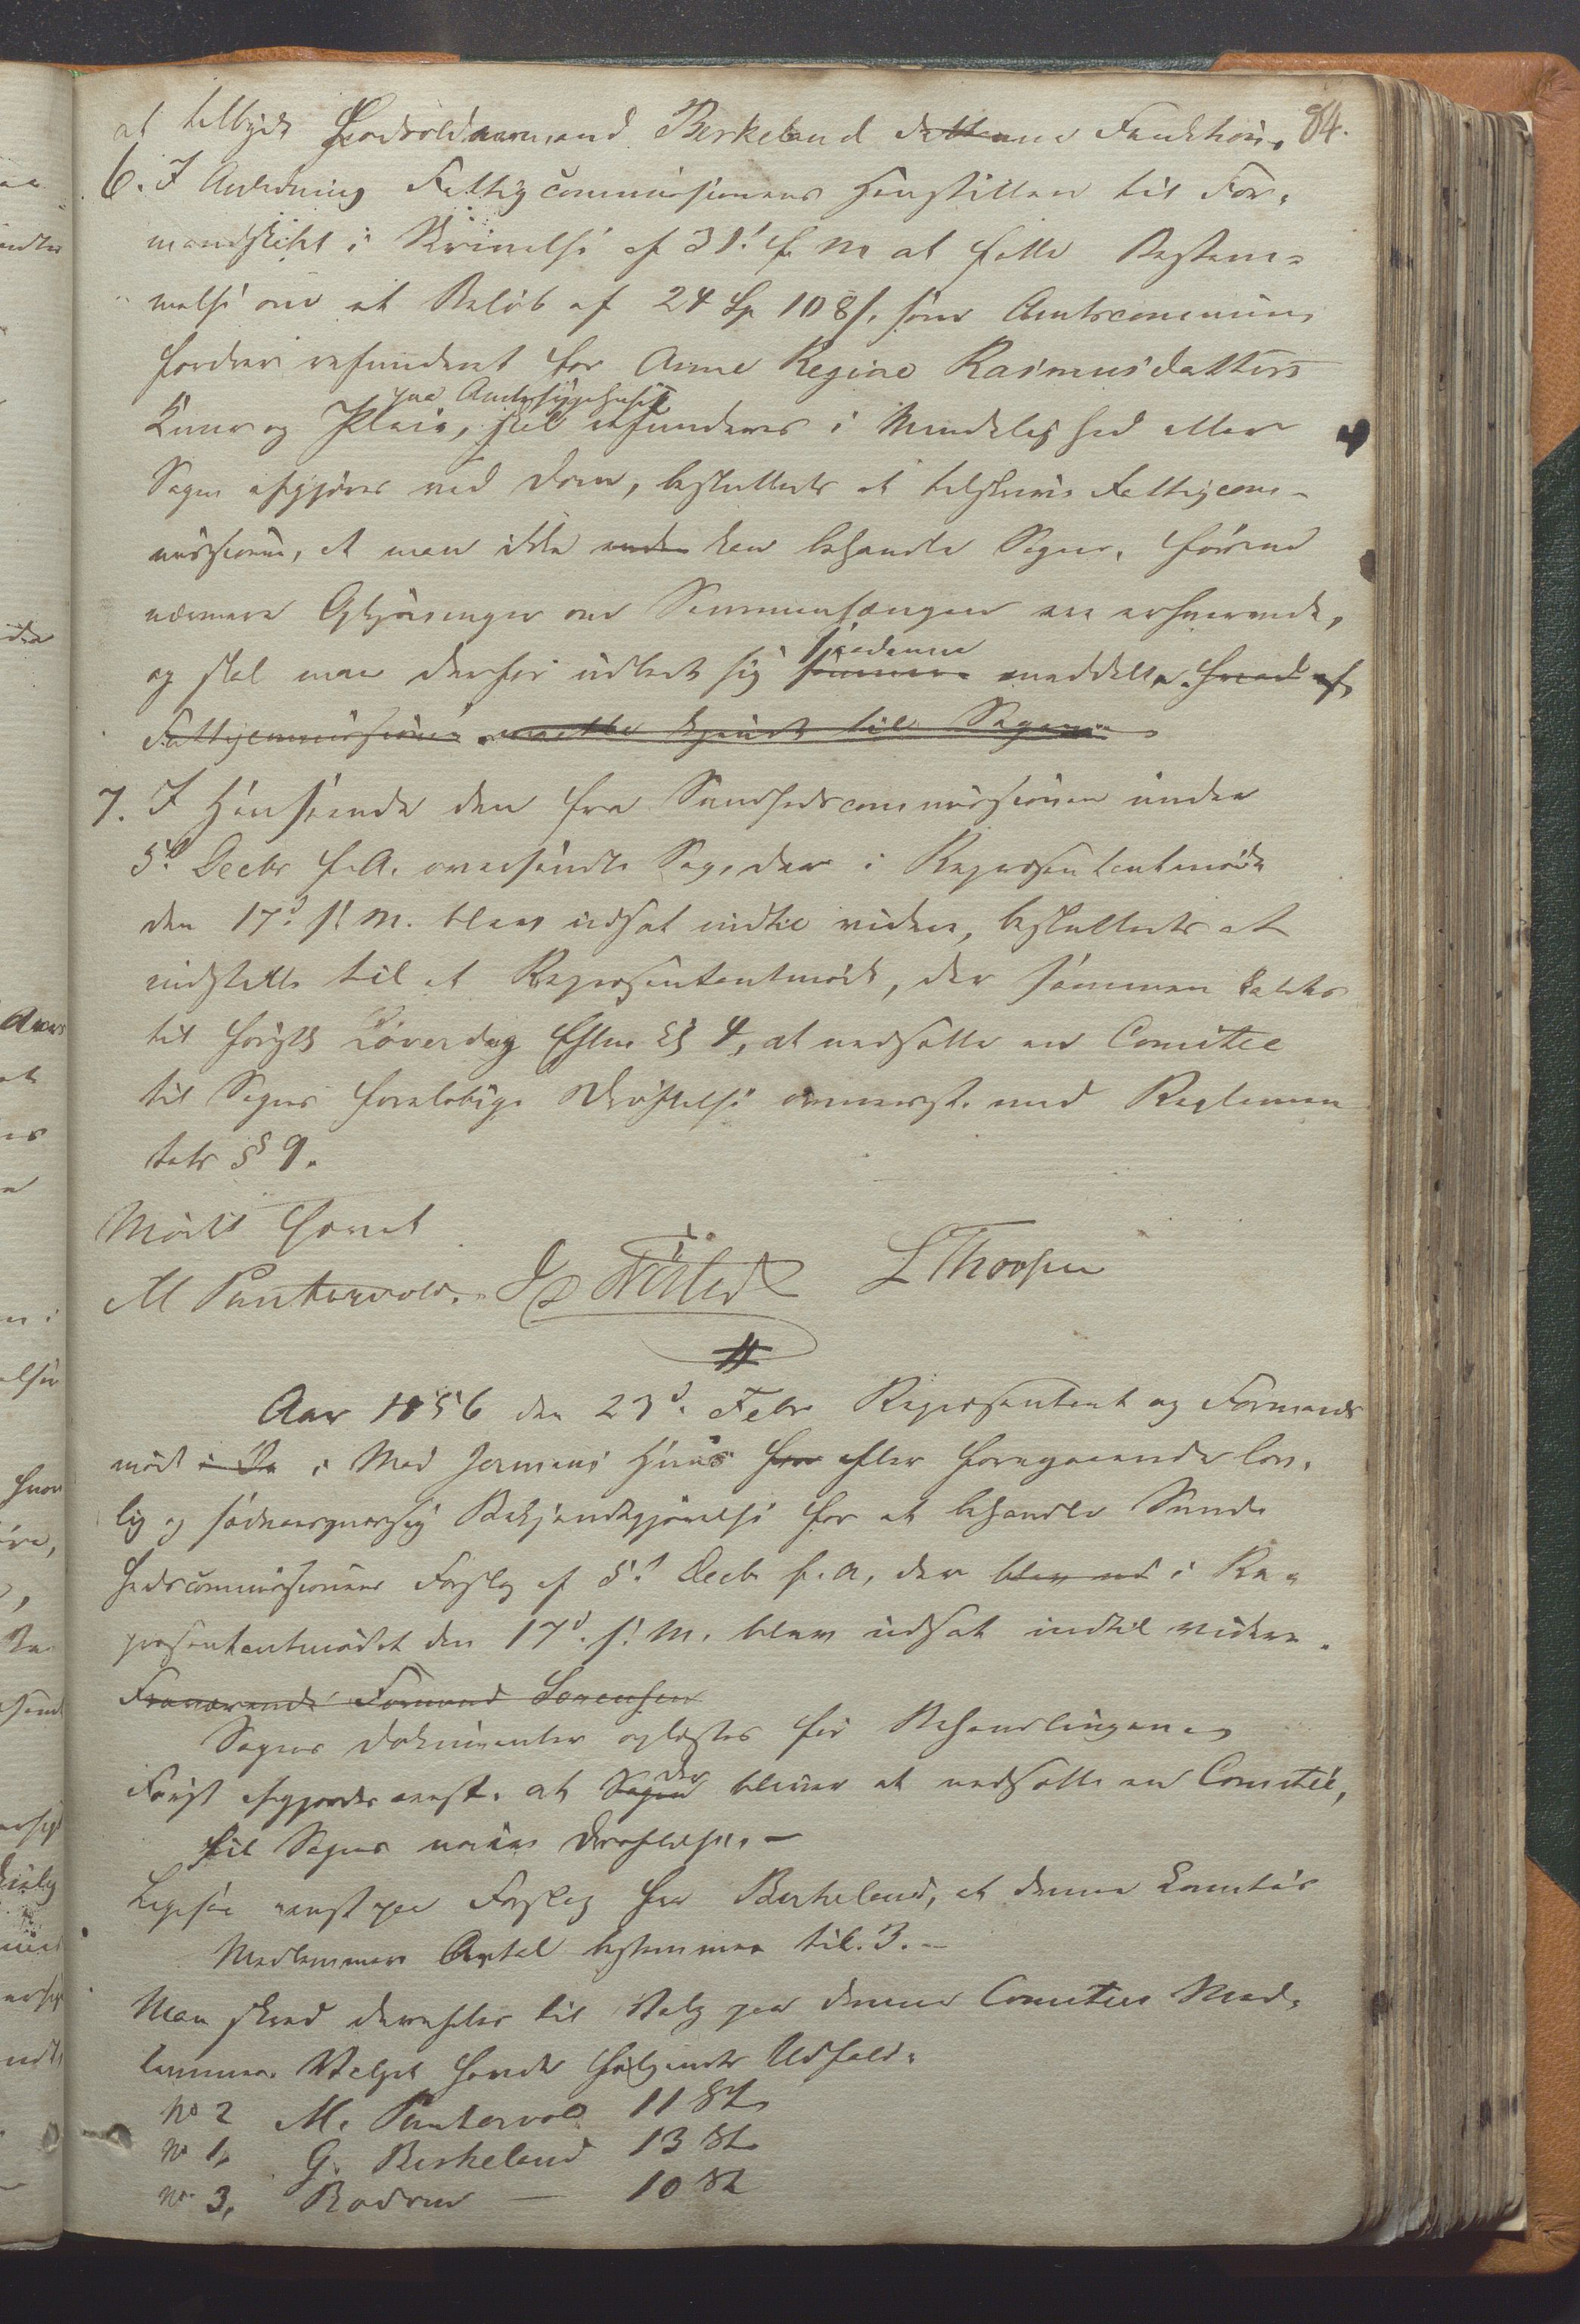 84.
at tilbyde Godvoldmand Berkeland denne Funktion.
6. I Anledning Fattigcommissionens Henstillen til For-
mandskabet i Skrivelse af 31' f. M at fatte Bestem-
melse om et Beløb af 24 Sp 108 s, som Amtscommunen
fordrer refunderet for Anne Regine Rasmusdatters
paa Amtssygehuset
Kuur og Pleie, skal refunderes i Mindelighed eller
Sagen afgjøres ved Dom, besluttedes at tilskrive Fattigcom-
missionen, at man ikke kan behandle Sagen, førend
nærmere Oplysninger om Sammenhængen ere erhvervede,
og skal man derfor udbede sig saadanne meddelte af
Fattigcommissionen
7. I Henseende den fra Sundhedscommissionen under
5' Decbr f. A. oversendte Sag, der i Repræsentantmøde
den 17d s. M. blev udsat indtil videre, besluttedes at
indstille til et Repræsentantmøde, der sammenkaldes
til førstk Løverdag Efterm Kl 4, at nedsætte en Comitee
til Sagens foreløbige Drøftelse overensst. med Reglemen
tets § 9.
Mødet hævet
M Puntervold. L Thorsen
Aar 1856 den 23d Febr Repræsentant og Formands
møde i Mad Jermans Huus efter foregaaende lov-
lig og sædvansmæssig Bekjendtgjørelse for at behandle Sund-
hedscommissionens Forslag af 5' Decbr f. A, der i Re-
præsentantmødet den 17d. s. M. blev udsat indtil videre.
Fraværende Formand Sørensen
Sagens Dokumenter oplæstes før Behandlingen.
Først afgjordes eenst. at der bliver at nedsætte en Comitee,
til Sagens nøiere Drøftelse. -
Ligesaa eenst paa Forslag fra Berkeland, at denne Comitees
Medlemmers Antal bestemmes til 3. -
Man skred derefter til Valg paa denne Comitees Med-
lemmer. Valget havde følgende Udfald.
No 2 M. Puntervold 11 St
No 1, G. Berkeland 13 St
No 3, Rodvin - 10 St